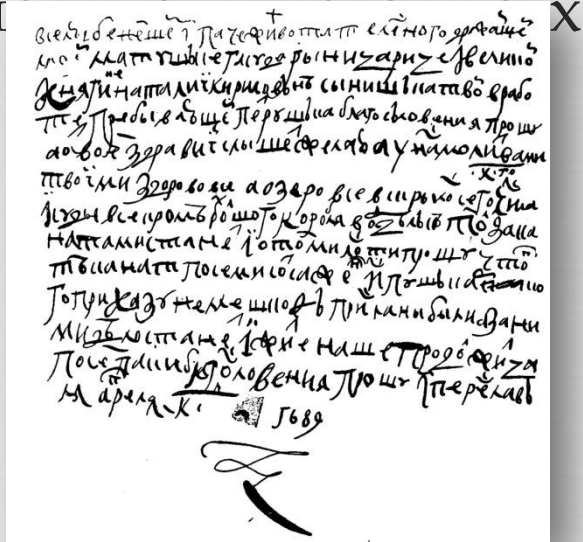 вселюбезнешеи i паче живота телесного дражаише
моеи матушьке гасударыни царице i великои
княгине наталиi кириловнъ сынишъка твои в рабо
те пребываюшеи петрушъка благословения прошу
а о твоемъ здравиi слышеть желаю а у насъ молитвами
твоiми здорово все а озеро все вскрылось сего к чъсла
i суды все кромъ болшого корабля в одълкъ толко за ка
натами станетъ i о томъ милости прошу чтопъ
тъ канаты по семисотъ саженъ ис пушъкарско
го приказу не мешковъ присланы были а за ни
ми дъло станетъ i житье наше продолжица
посемъ паки благословения прошу iс переславъ
ля апреля к 1689